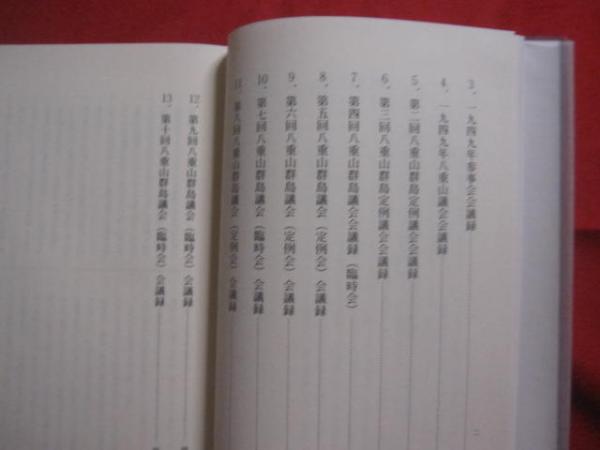 3、一九四九年参事会会議録
4、一九四九年八重山議会会議録
5、第二回八重山群島定例議会会議録
6、第三回八重山群島定例議会会議録
7、第四回八重山群島議会会議録（臨時会）
8、第五回八重山群島議会（定例会）会議録
9、第六回八重山群島議会（定例会）会議録
10、第七回八重山群島議会（臨時会）会議録
11、第八回八重山群島議会（定例会）会議録
12、第九回八重山群島議会（臨時会）会議録
13、第十回八重山群島議会（臨時会）会議録
二